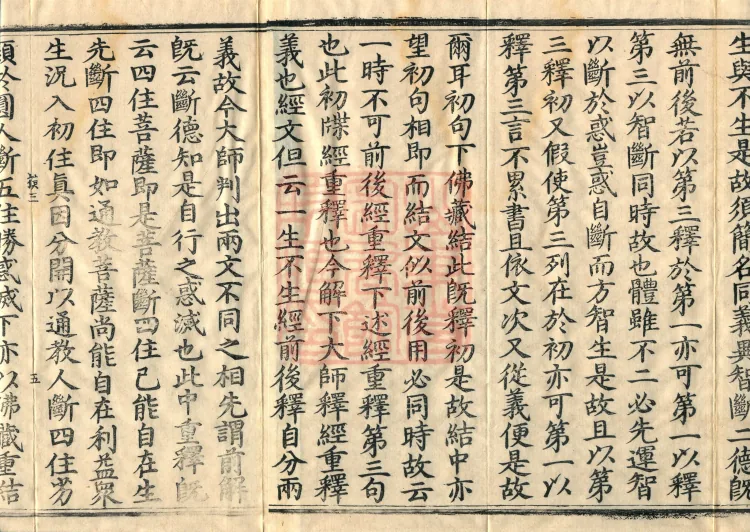 生與不生是故須簡名同義異智斷二德旣
無前後若以第三釋於第一亦可第一以釋
第三以智斷同時故也體雖不二必先運智
以斷於惑豈惑自斷而方智生是故且以第
三釋初又假使第三列在於初亦可第一以
釋第三言不累書且依文次又從義便是故
爾耳初句下佛藏結此旣釋初是故結中亦
望初句相即而結文似前後用必同時故云
一時不可前後經重釋下述經重釋第三句
也此初牒經重釋也今解下大師釋經重釋
義也經文但云一生不生經前後釋自分兩
義故今大師判出兩文不同之相先謂前解
旣云斷德知是自行之惑滅也此中重釋旣
云四住菩薩即是菩薩斷四住已能自在生
先斷四住即如通教菩薩尚能自在利益衆
生況入初住眞因分開以通教人斷四住劣
顯於圓人斷五住勝惑滅下亦以佛藏重結
五